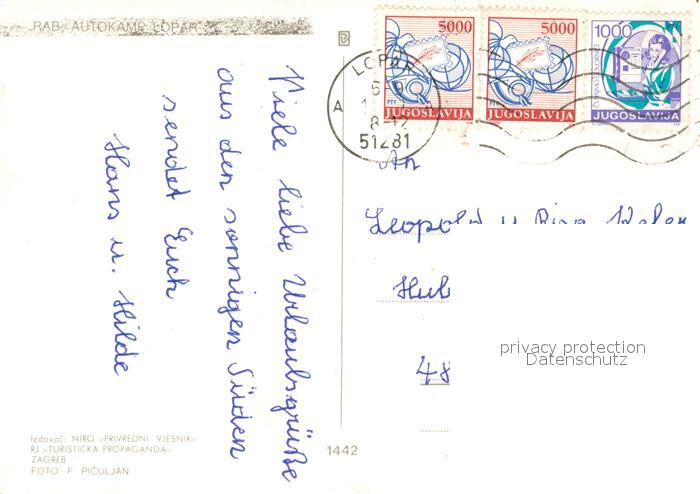 RAB, AUTOKAMP LOPAR
Viele liebe Urlaubsgrüße
aus den sonnigen Süden
sendet Euch
Hans u. Hilde
Izdavač: NIRO »PRIVREDNI VJESNIK«
RJ »TURISTIČKA PROPAGANDA«
ZAGREB
FOTO F PIČULJAN
1442
5000
PTT
JUGOSLAVIJA
5000
PTT
JUGOSLAVIJA
1000
JUGOSLAVIJA
LOPAR
A
8-12
51281
An
Leopold u
Hub
48
privacy protection
Datenschutz